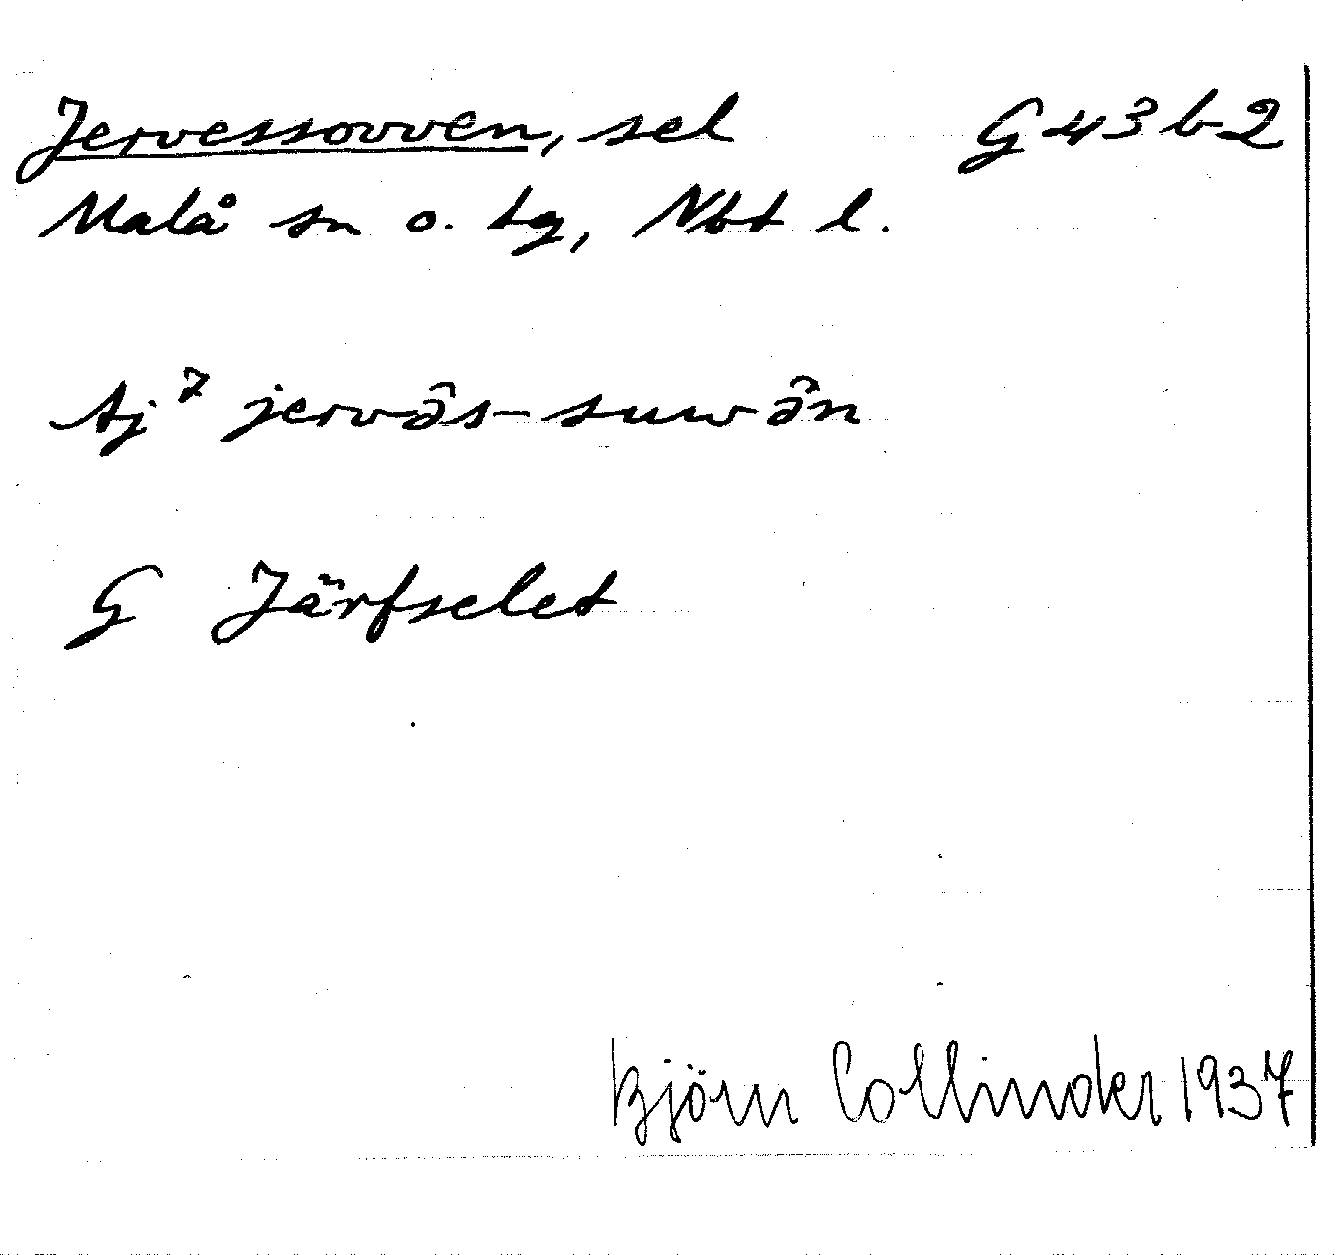 Jervessovven, sel G43b2
Malå sn o. tg, Nbt l.
Aj 7 jervâs-suwân
G Järfselet
Björn Collinder 1937